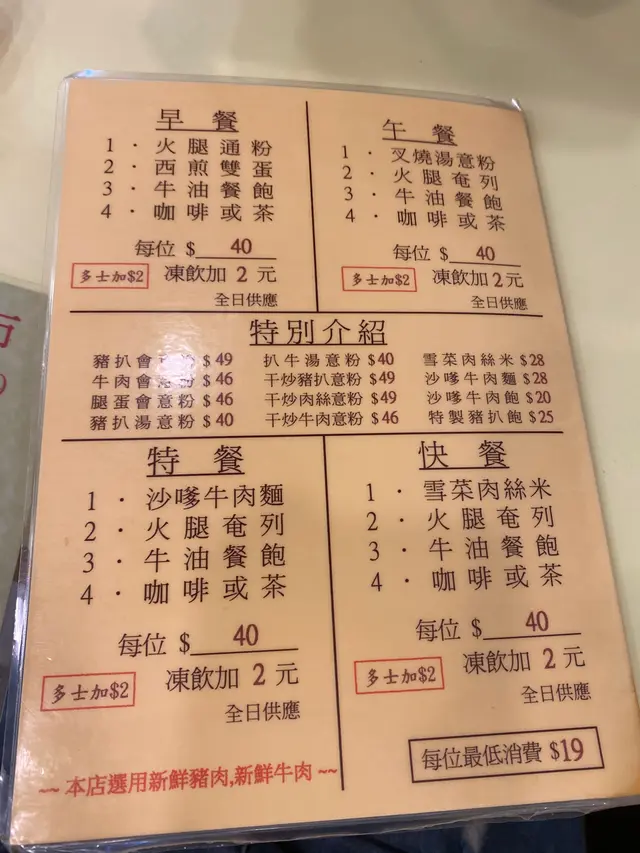 早餐
1．火腿通粉
2．西煎雙蛋
3．牛油餐飽
4．咖啡或茶
每位 $ 40
多士加$2 凍飲加 2 元
全日供應
午餐
1．叉燒湯意粉
2．火腿奄列
3．牛油餐飽
4．咖啡或茶
每位 $ 40
多士加$2 凍飲加 2 元
全日供應
特別介紹
豬扒會意粉 $49 扒牛湯意粉 $40 雪菜肉絲米 $28
牛肉會意粉 $46 干炒豬扒意粉 $49 沙嗲牛肉麵 $28
腿蛋會意粉 $46 干炒肉絲意粉 $49 沙嗲牛肉飽 $20
豬扒湯意粉 $40 干炒牛肉意粉 $46 特製豬扒飽 $25
特餐
1．沙嗲牛肉麵
2．火腿奄列
3．牛油餐飽
4．咖啡或茶
每位 $ 40
多士加$2 凍飲加 2 元
全日供應
快餐
1．雪菜肉絲米
2．火腿奄列
3．牛油餐飽
4．咖啡或茶
每位 $ 40
多士加$2 凍飲加 2 元
全日供應
~~ 本店選用新鮮豬肉,新鮮牛肉 ~~
每位最低消費 $19